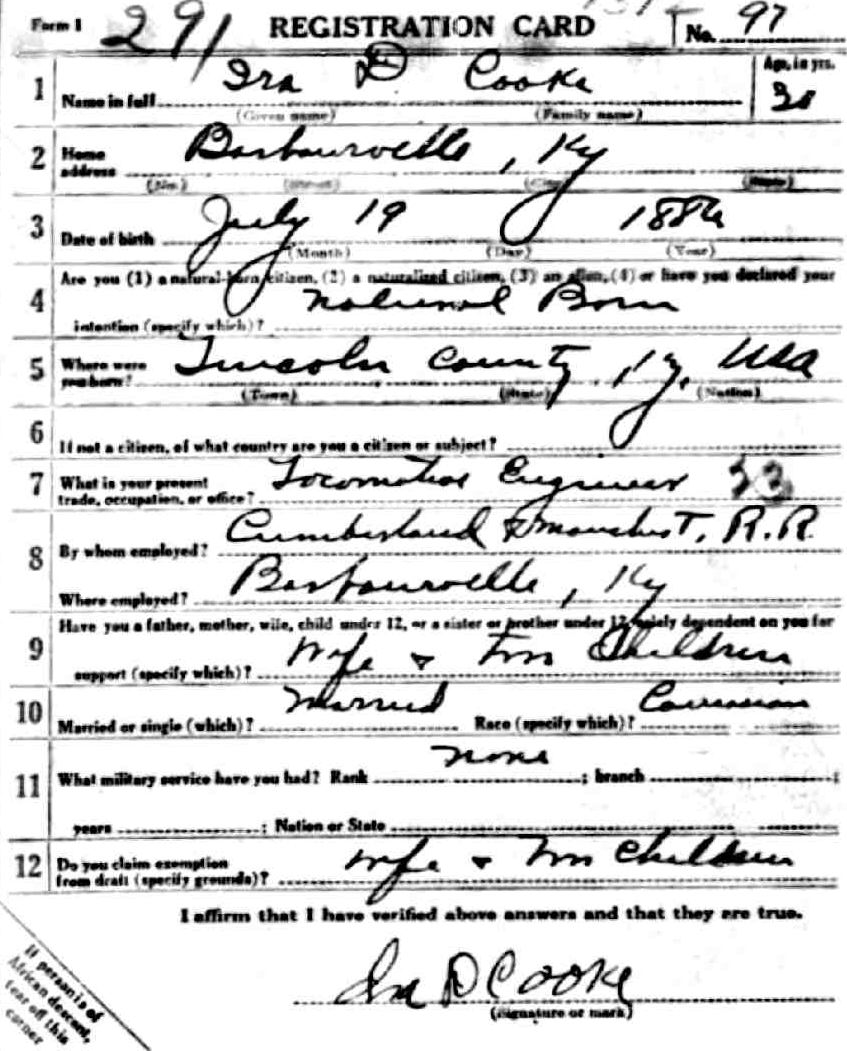 Form 1 291 REGISTRATION CARD No. 97
1 Name in full Ira D Cooke Age, in yrs. 30
(Given name) (Family name)
2 Home address Barbourville, Ky
(No.) (Street) (City) (State)
3 Date of birth July 19 1886
(Month) (Day) (Year)
4 Are you (1) a natural-born citizen, (2) a naturalized citizen, (3) an alien, (4) or have you declared your
intention (specify which)? Natural Born
5 Where were you born? Lincoln County, Ky, USA
(Town) (State) (Nation)
6 If not a citizen, of what country are you a citizen or subject?
7 What is your present trade, occupation, or office? Locomotive Engineer 33
8 By whom employed? Cumberland & Manchest. R.R.
Where employed? Barbourville, Ky
9 Have you a father, mother, wife, child under 12, or a sister or brother under 12, solely dependent on you for
support (specify which)? Wife & Two Children
10 Married or single (which)? Married Race (specify which)? Caucasian
11 What military service have you had? Rank none ; branch ;
years ; Nation or State
12 Do you claim exemption from draft (specify grounds)? Wife & Two Children
I affirm that I have verified above answers and that they are true.
Ira D Cooke
(Signature or mark)
If person is of
African descent,
tear off this
corner